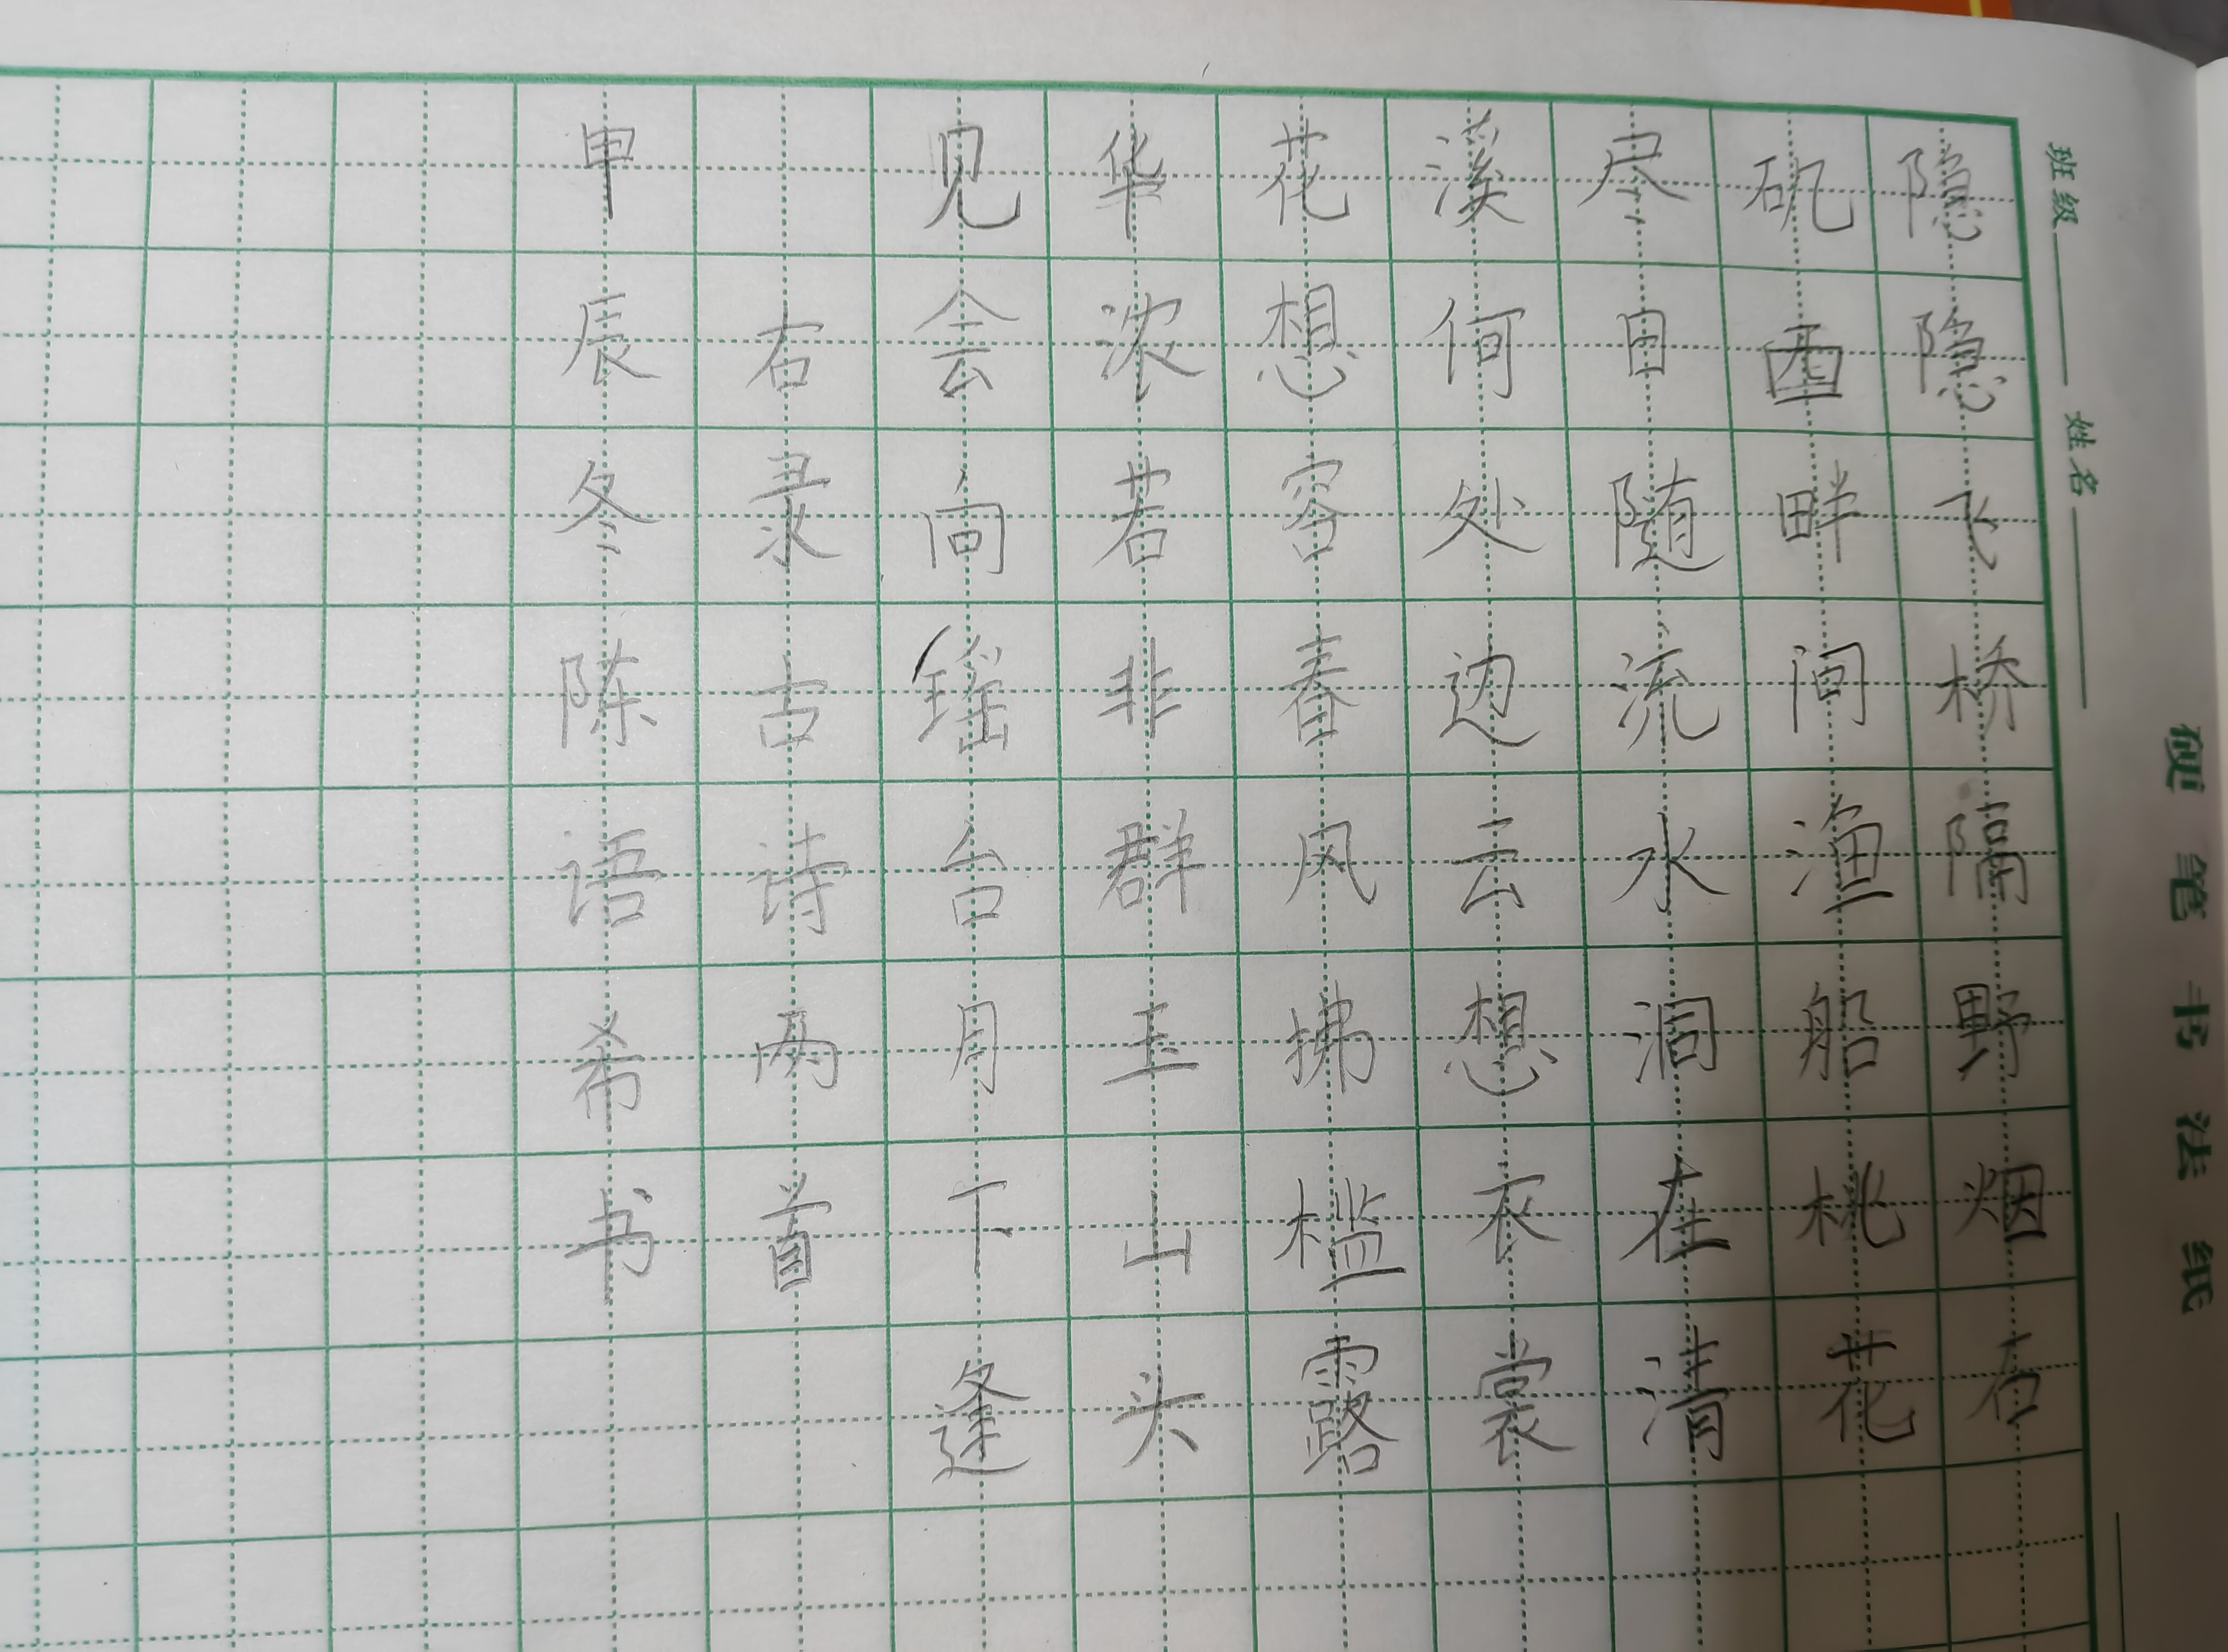 硬笔书法纸
班级 姓名
隐隐飞桥隔野烟石
矶西畔问渔船桃花
尽日随流水洞在清
溪何处边云想衣裳
花想容春风拂槛露
华浓若非群玉山头
见会向瑶台月下逢
右录古诗两首
甲辰冬陈语希书